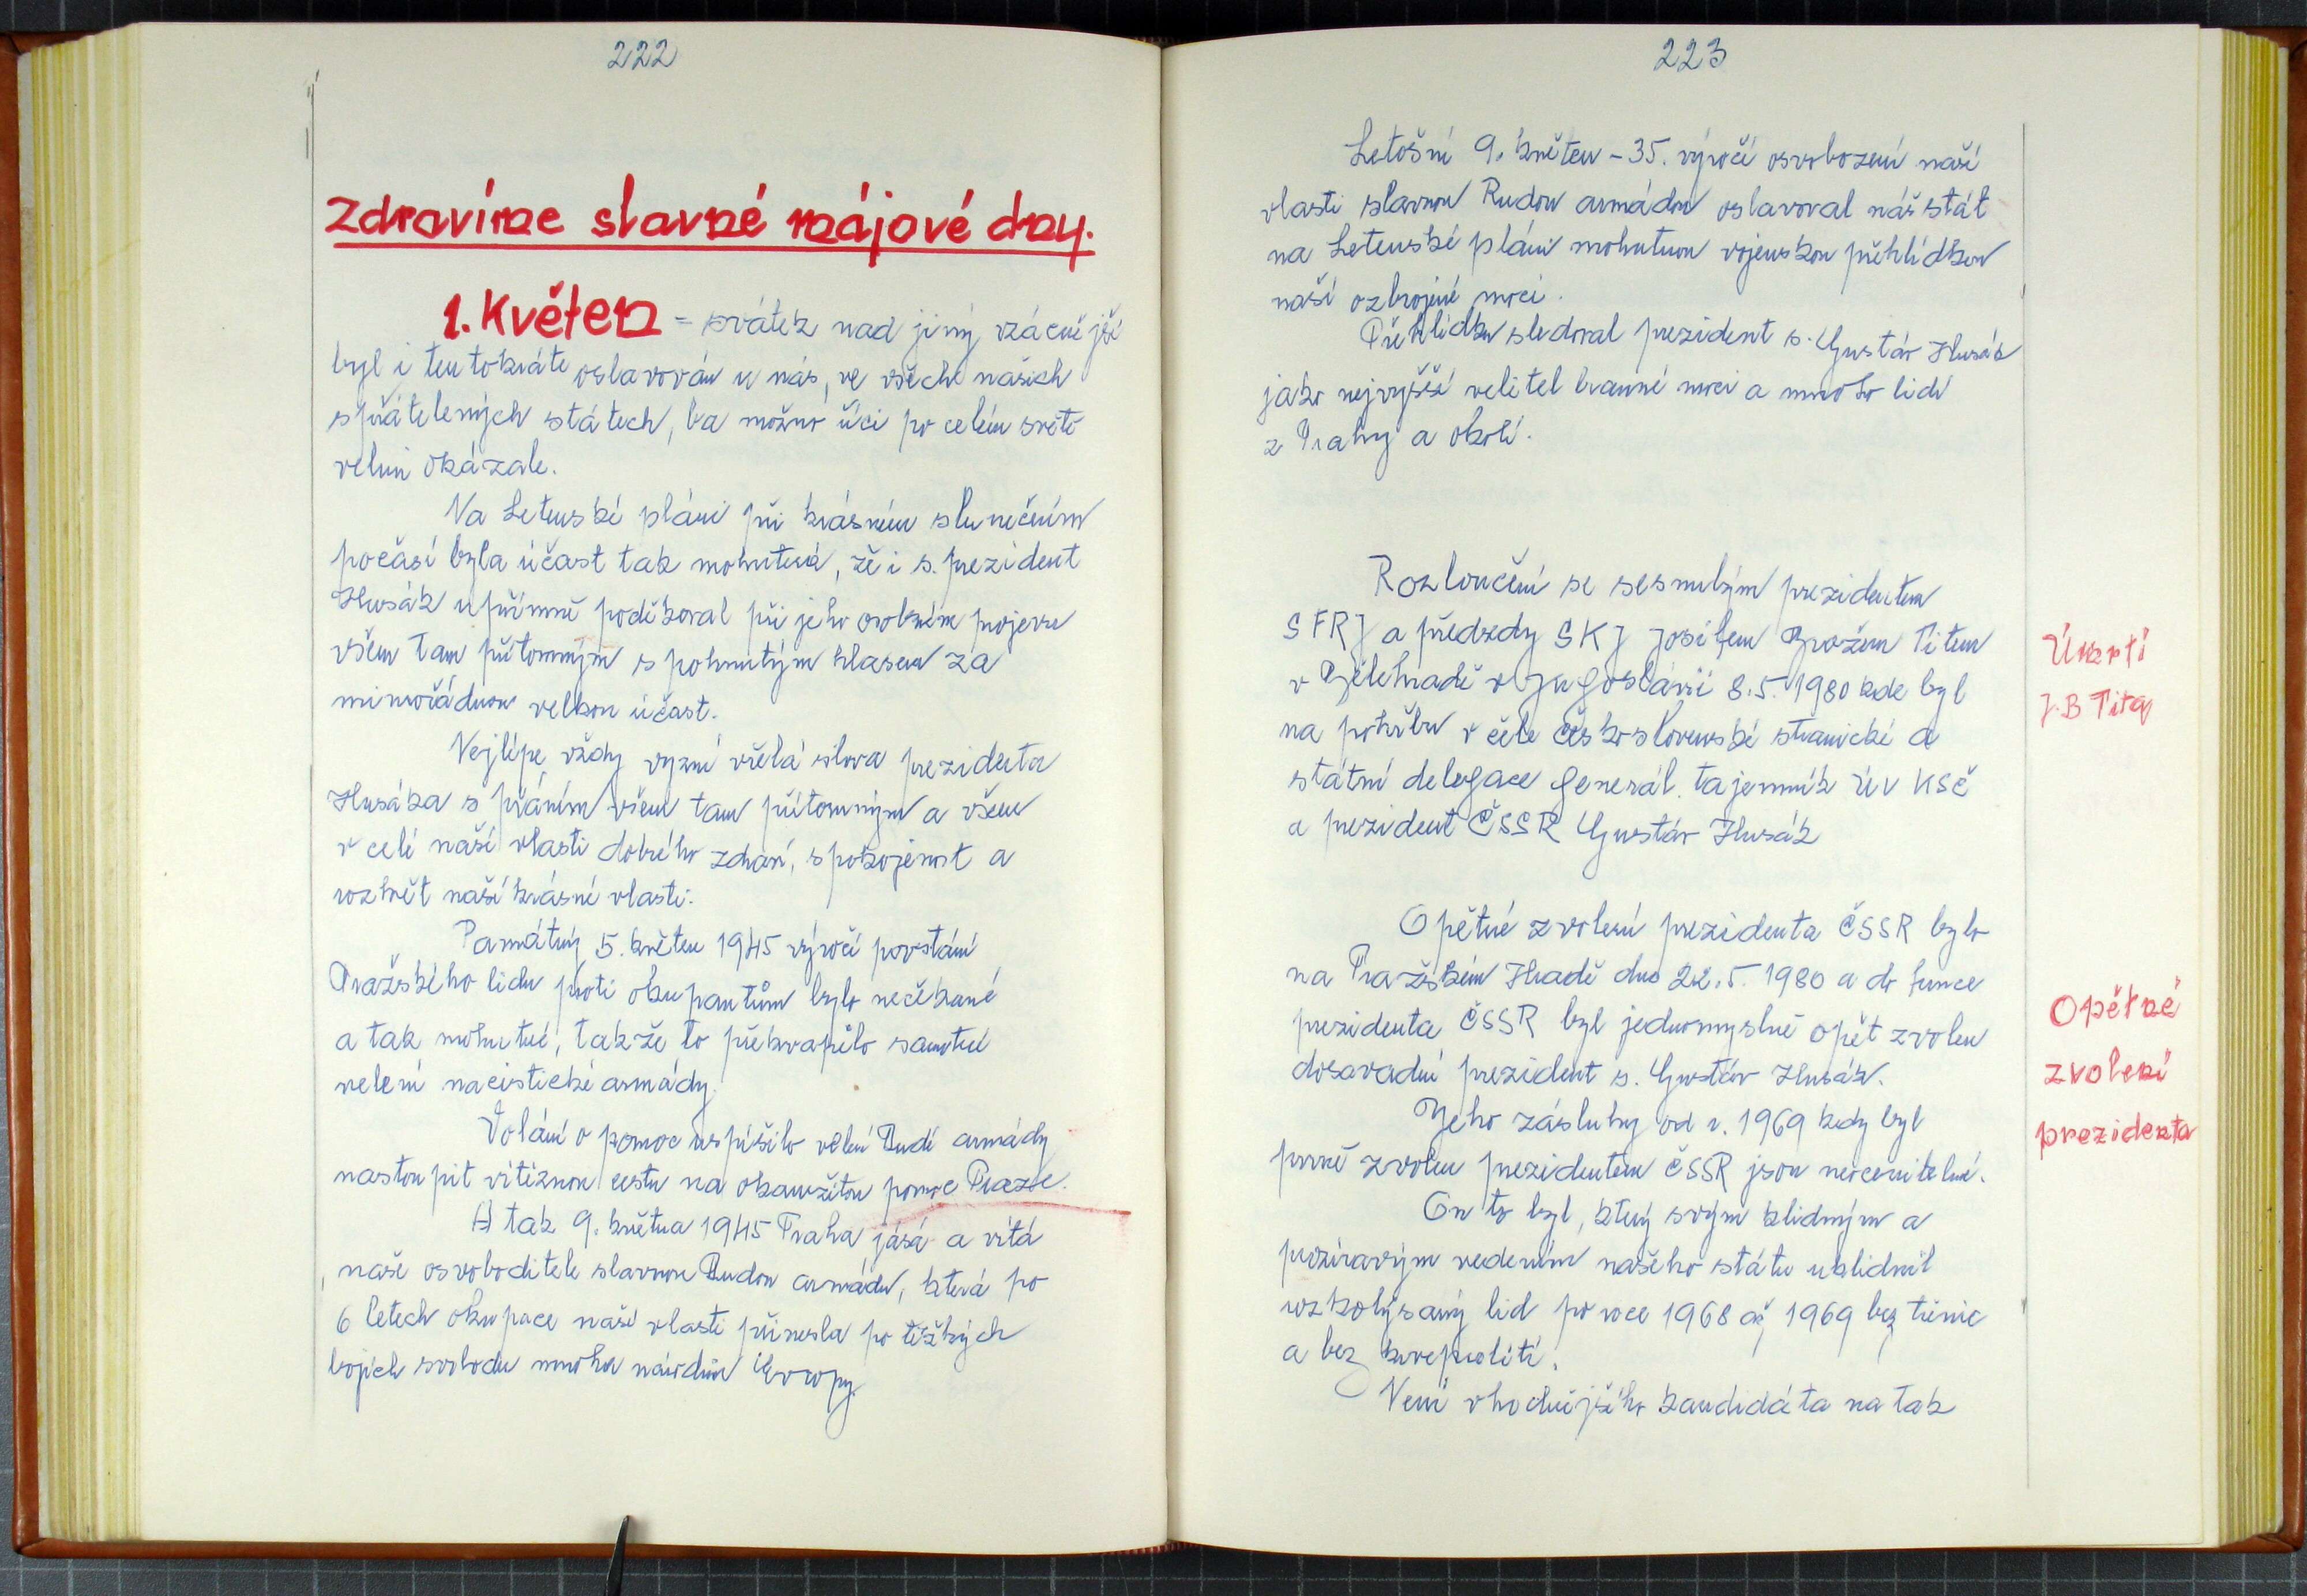 222
Zdravíme slavné májové dny.
1. Květen = svátek nad jiný vzácnější
byl i tentokráte oslavován u nás, ve všech našich
spřátelených státech, ba možno říci po celém světě
velmi okázale.
Na Letenské pláni při krásném slunečním
počasí byla účast tak mohutná, že i s. prezident
Husák upřímně poděkoval při jeho osobním projevu
všem tam přítomným s pohnutým hlasem za
mimořádnou velkou účast.
Nejlépe vždy vyzní vřelá slova prezidenta
Husáka s přáním všem tam přítomným a všem
v celé naší vlasti dobrého zdraví, spokojenost a
rozkvět naší krásné vlasti.
Památný 5. květen 1945 výročí povstání
Pražského lidu proti okupantům bylo nečekané
a tak mohutné, takže to překvapilo samotné
velení nacistické armády.
Volání o pomoc uspíšilo velení Rudé armády
nastoupit vítěznou cestu na okamžitou pomoc Praze.
A tak 9. května 1945 Praha jásá a vítá
naše osvoboditele slavnou Rudou armádu, která po
6 letech okupace naší vlasti přinesla po těžkých
bojích svobodu mnoha národům Evropy.
223
Letošní 9. květen - 35. výročí osvobození naší
vlasti slavnou Rudou armádou oslavoval náš stát
na Letenské pláni mohutnou vojenskou přehlídkou
naší ozbrojené moci.
Přehlídku sledoval prezident s. Gustáv Husák
jako nejvyšší velitel branné moci a mnoho lidí
z Prahy a okolí.
Rozloučení se zesnulým prezidentem
SFRJ a předsedy SKJ Josifem Brozem Titem
v Bělehradě v Jugoslávii 8.5.1980 kde byl
na pohřbu v čele československé stranické a
státní delegace generál. tajemník ÚV KSČ
a prezident ČSSR Gustáv Husák
Úmrtí
J.B Tita
Opětné zvolení prezidenta ČSSR bylo
na Pražském Hradě dne 22.5.1980 a do funce
prezidenta ČSSR byl jednomyslně opět zvolen
dosavadní prezident s. Gustáv Husák.
Opětné
zvolení
prezidenta
Jeho zásluhy od r. 1969 kdy byl
prvně zvolen prezidentem ČSSR jsou neocenitelné.
On to byl, který svým klidným a
prozíravým vedením našeho státu uklidnil
rozkolýsaný lid po roce 1968 až 1969 bez tienic
a bez krveprolití.
Není vhodnějšího kandidáta na tak